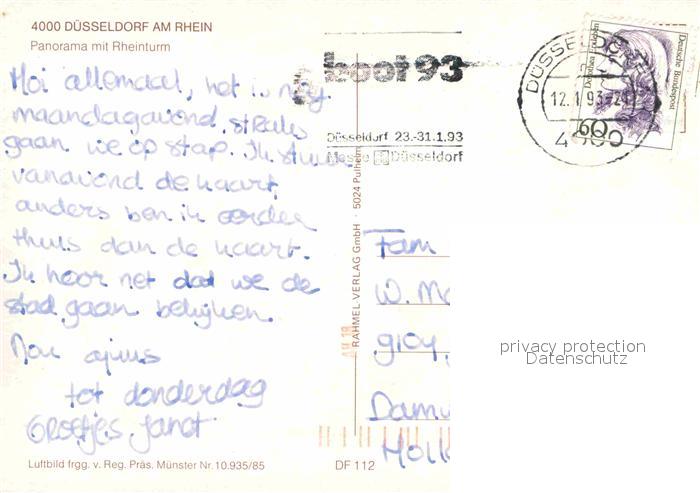 4000 DÜSSELDORF AM RHEIN
Panorama mit Rheinturm
Hoi allemaal, het is nog
maandagavond, straks
gaan we op stap. Ik stuur
vanavond de kaart,
anders ben ik eerder
thuis dan de kaart.
Ik hoor net dat we de
stad gaan bekijken.
Nou ajuus
tot donderdag
Groetjes Janet
boot 93
Düsseldorf 23.-31.1.93
Messe Düsseldorf
DÜSSELDORF
12.1.93-21
4000
Dorothea Erxleben
Deutsche Bundespost
60
RAHMEL-VERLAG GmbH · 5024 Pulheim
Fam
W. Mo
gioy
Damw
Holl
privacy protection
Datenschutz
Luftbild frgg. v. Reg. Präs. Münster Nr. 10.935/85
DF 112